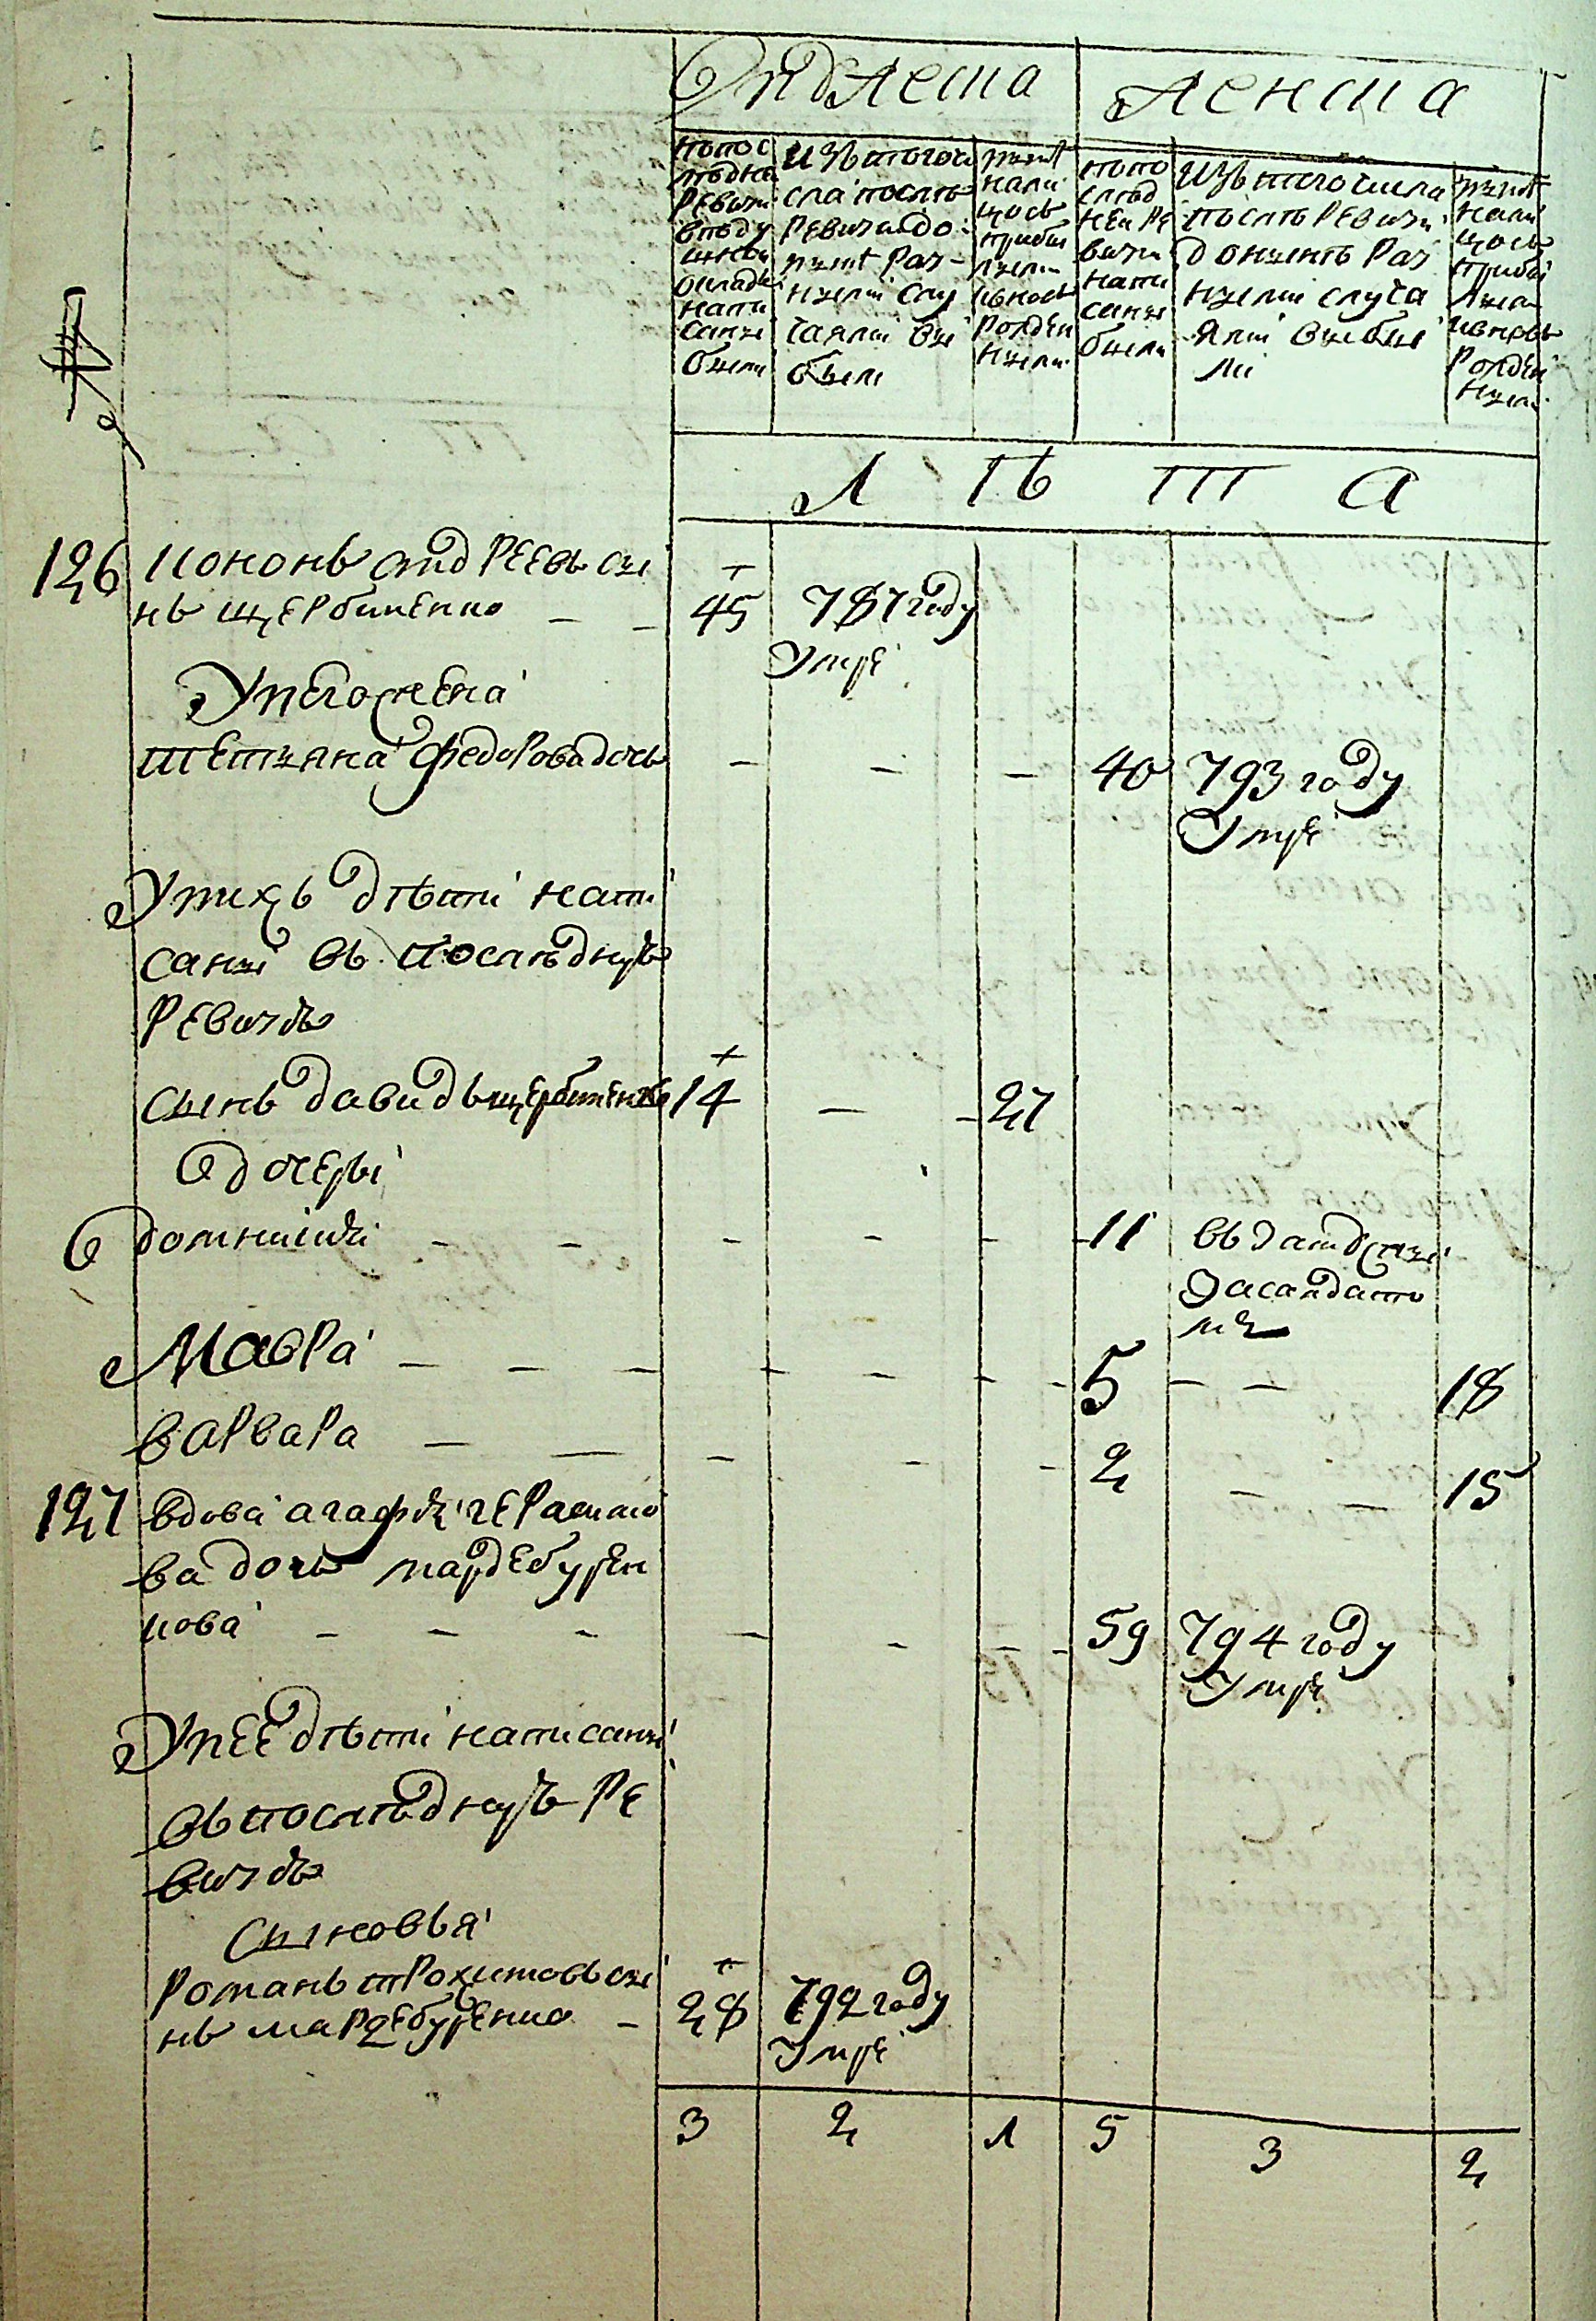 Мужеска
Женска
по пос
лѣдней
ревизи
в поду
шном
окладѣ
напи
саны
были
Изъ того чи
сла послѣ
ревизи до
нынѣ раз-
ными слу
чаями вы
были
нынѣ
нали
цось
прибы
лыми
и вновь
рожден
ными
по по
слѣд
ней ре
визи
напи
саны
были
Изъ того числа
послѣ ревизи
до нынѣ раз
ными случа
ями выбы
ли
нынѣ
нали
цось
прибы
лыми
и вновь
рожден
ными
Л Ѣ Т А
126 кононъ андреевъ сы
нъ щербиненко — — 45 787 году
умре
У него жена
Тетяна федорова дочь — — — 40 793 году
умре
У них дѣти напи
саны въ последнуѣ
ревизѣ
сынъ давидъ щербиненко 14 — 27
дочери
домникия — — — — — 11 въдатдсны
мѣ
Мавра — — — — — — 5 — — 18
варвара — — — — — 2 — — 15
127 вдова агафия герасимо
ва дочь мардебурен
кова — — — — — — 59 794 году
умре
У неё дѣти написаны
въ последнуѣ ре
визѣ
Сыновья
романъ трохимовъ сы
нъ мардебуренко — 28 792 году
умре
3 2 1 5 3 2